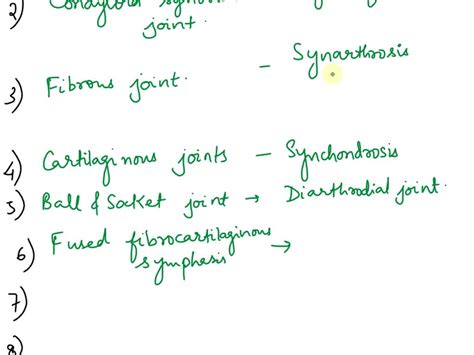 2) Condyloid
joint.
3) Fibrous joint. - Synarthrosis
4) Cartilaginous joints - Synchondrosis
5) Ball & Socket joint → Diarthrodial joint.
6) Fused fibrocartilaginous →
symphesis
7)
8)